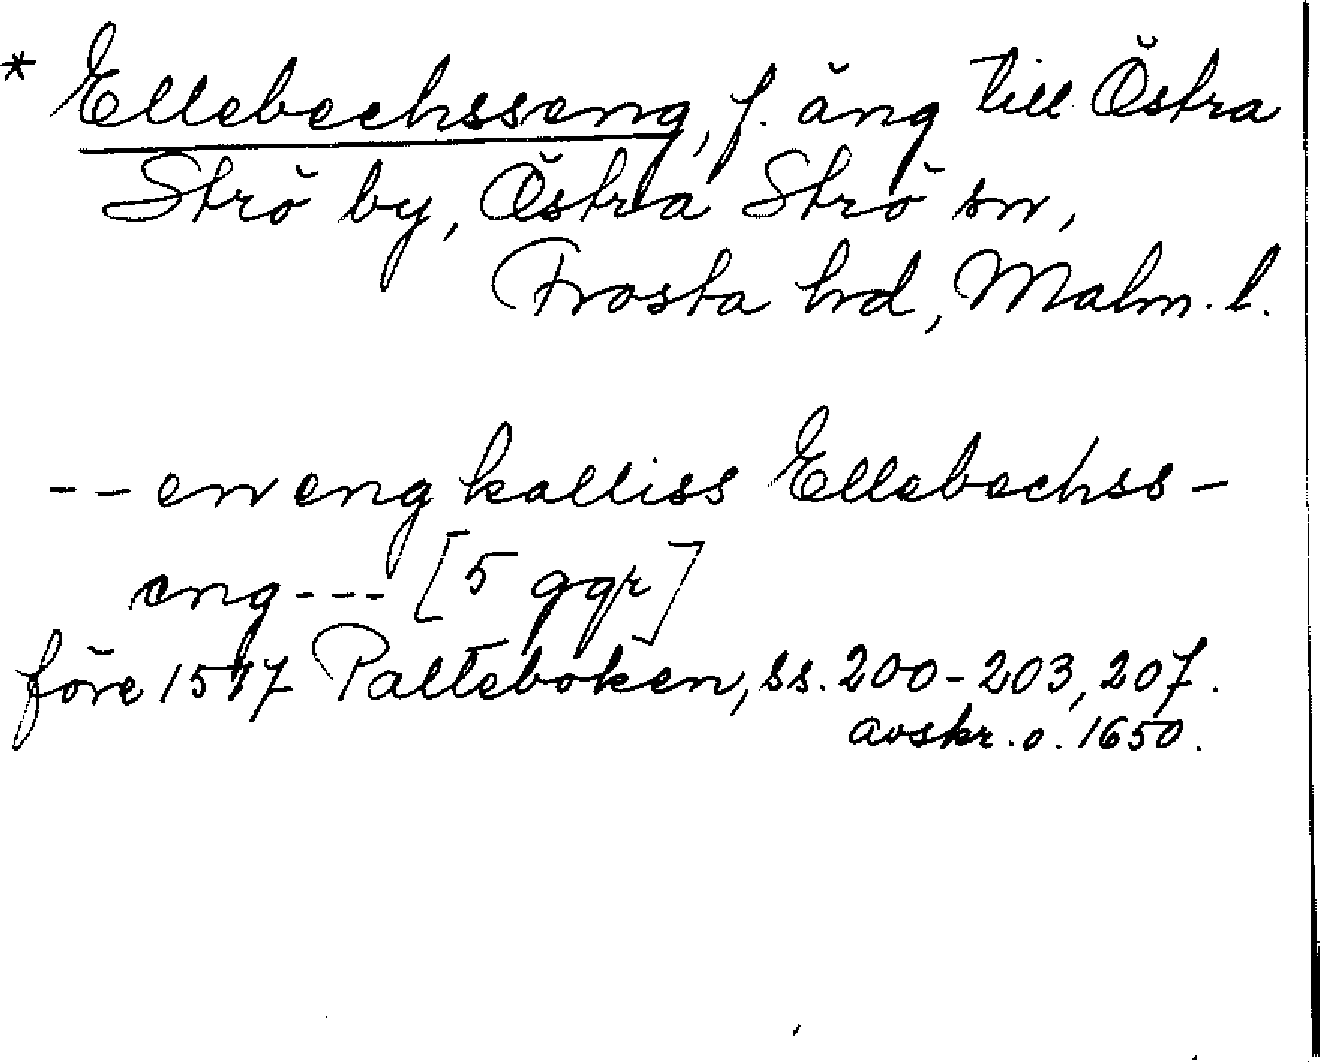 * Ellebechsseng, f. äng till Östra
Strö by, Östra Strö sn,
Frosta hd, Malm. l.
-- en eng kalliss Ellebechss-
eng --- [5 ggr]
före 1577 Palteboken, ss. 200-203, 207.
avskr. o. 1650.